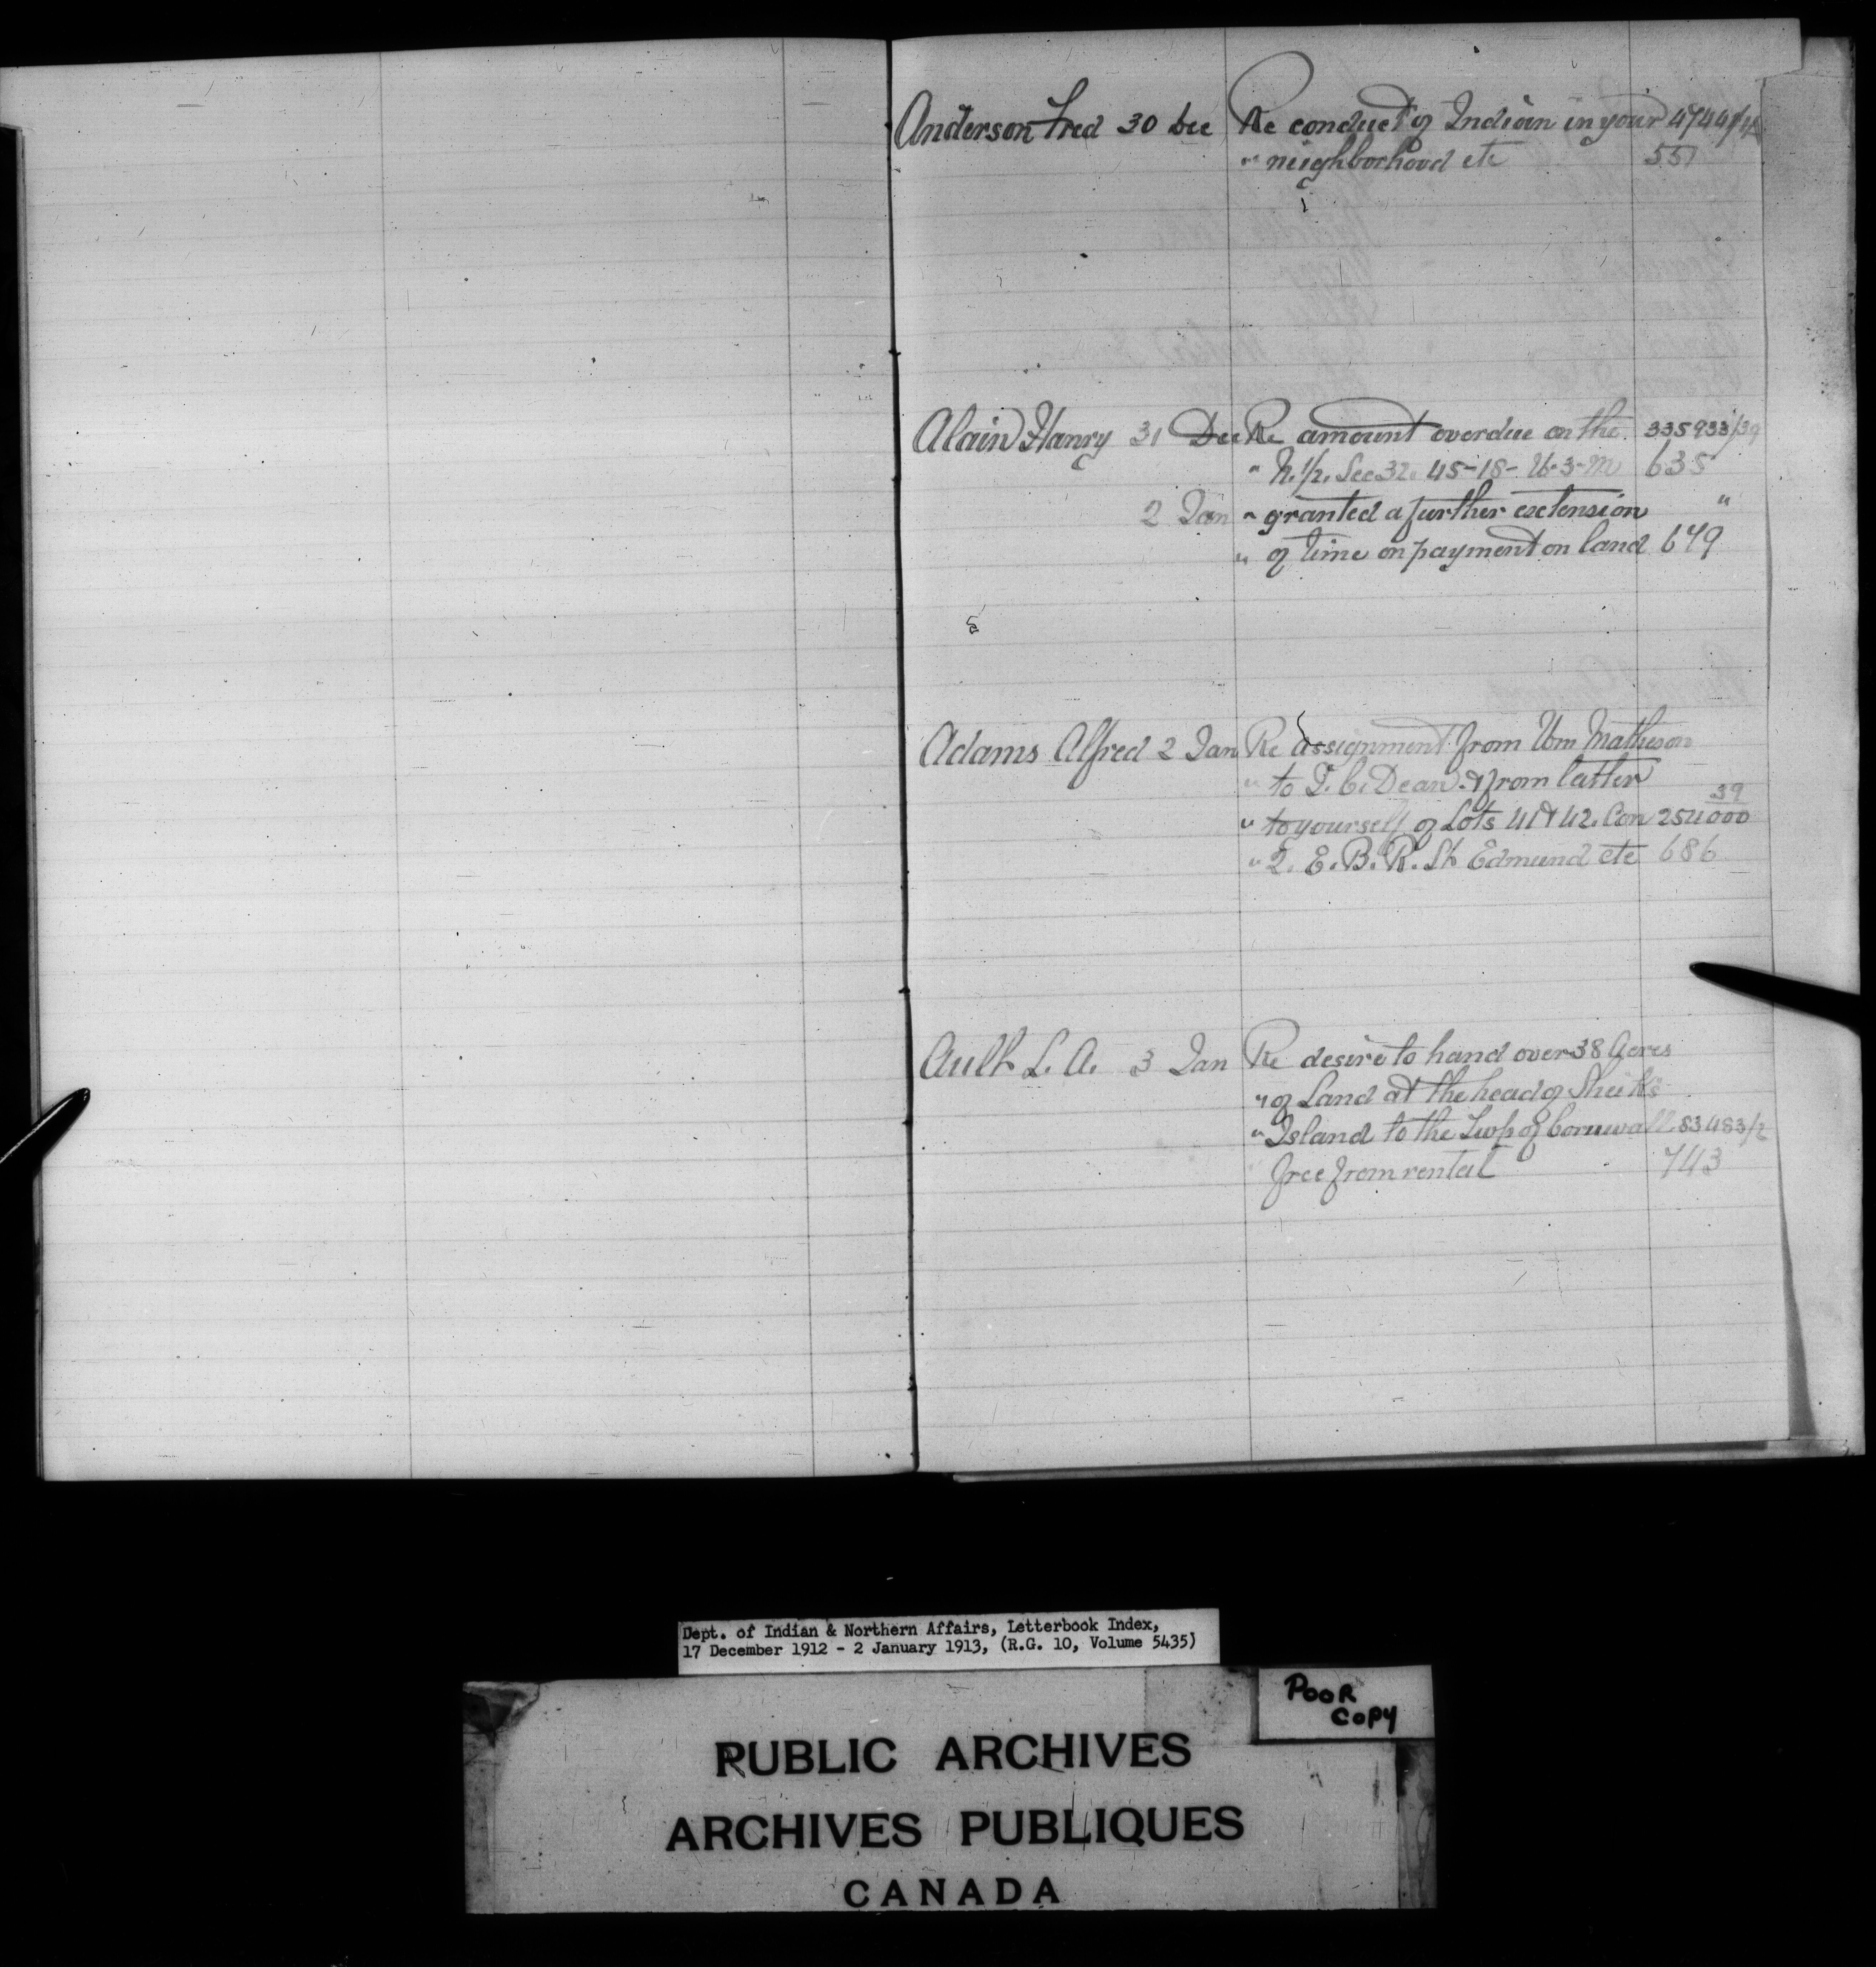 Anderson Fred 30 Dec Re conduct of Indian in your 47444/4A
" neighborhood etc 551
Alain Hanry 31 Dec Re amount overdue on the 335933/39
" N. 1/2. Sec 32. 45-18-W-3-M 635
2 Jan " granted a further extension "
" of time on payment on land 649
Adams Alfred 2 Jan Re assignment from Wm Matheson
" to T. C. Dean & from latter
" to yourself of Lots 41 & 42. Con 254000/39
" 2. E. B. R. St Edmund etc 686
Ault L. A. 3 Jan Re desire to hand over 38 Acres
" of Land at the head of Sheik's
" Island to the Twp of Cornwall 83483/2
free from rental 743
Dept. of Indian & Northern Affairs, Letterbook Index,
17 December 1912 - 2 January 1913, (R.G. 10, Volume 5435)
POOR
COPY
PUBLIC ARCHIVES
ARCHIVES PUBLIQUES
CANADA